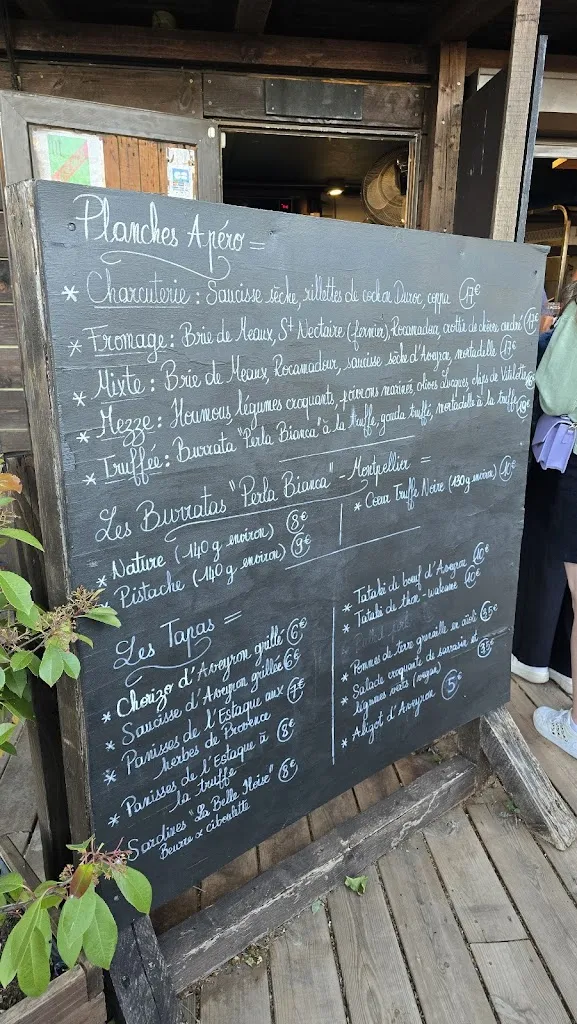 Planches Apéro =
* Charcuterie : Saucisse sèche, rillettes de cochon Duroc, coppa 17€
* Fromage : Brie de Meaux, St Nectaire (fermier), Rocamadour, crottin de chèvre, cendré 17€
* Mixte : Brie de Meaux, Rocamadour, saucisse sèche d'Aveyron, mortadelle 17€
* Mezze : Houmous, légumes croquants, poivrons marinés, olives Lucques, chips de Vitelotte
* Truffée : Burrata "Perla Bianca" à la truffe, gouda truffé, mortadelle à la truffe
Les Burratas "Perla Bianca" - Montpellier =
* Nature (140 g environ) 8€
* Pistache (140 g environ) 9€
* Cœur Truffe Noire (130g environ) 10€
Les Tapas =
* Chorizo d'Aveyron grillé 6€
* Saucisse d'Aveyron grillée 6€
* Panisses de l'Estaque aux herbes de Provence 7€
* Panisses de l'Estaque à la truffe 8€
* Sardines "La Belle Iloise" 8€
Beurre & ciboulette
* Tataki de bœuf d'Aveyron 10€
* Tataki de thon - wakamé 10€
* Pommes de terre grenaille en aïoli 3,5€
* Salade croquante de sarrasin et
légumes verts (vegan)
* Aligot d'Aveyron 5€